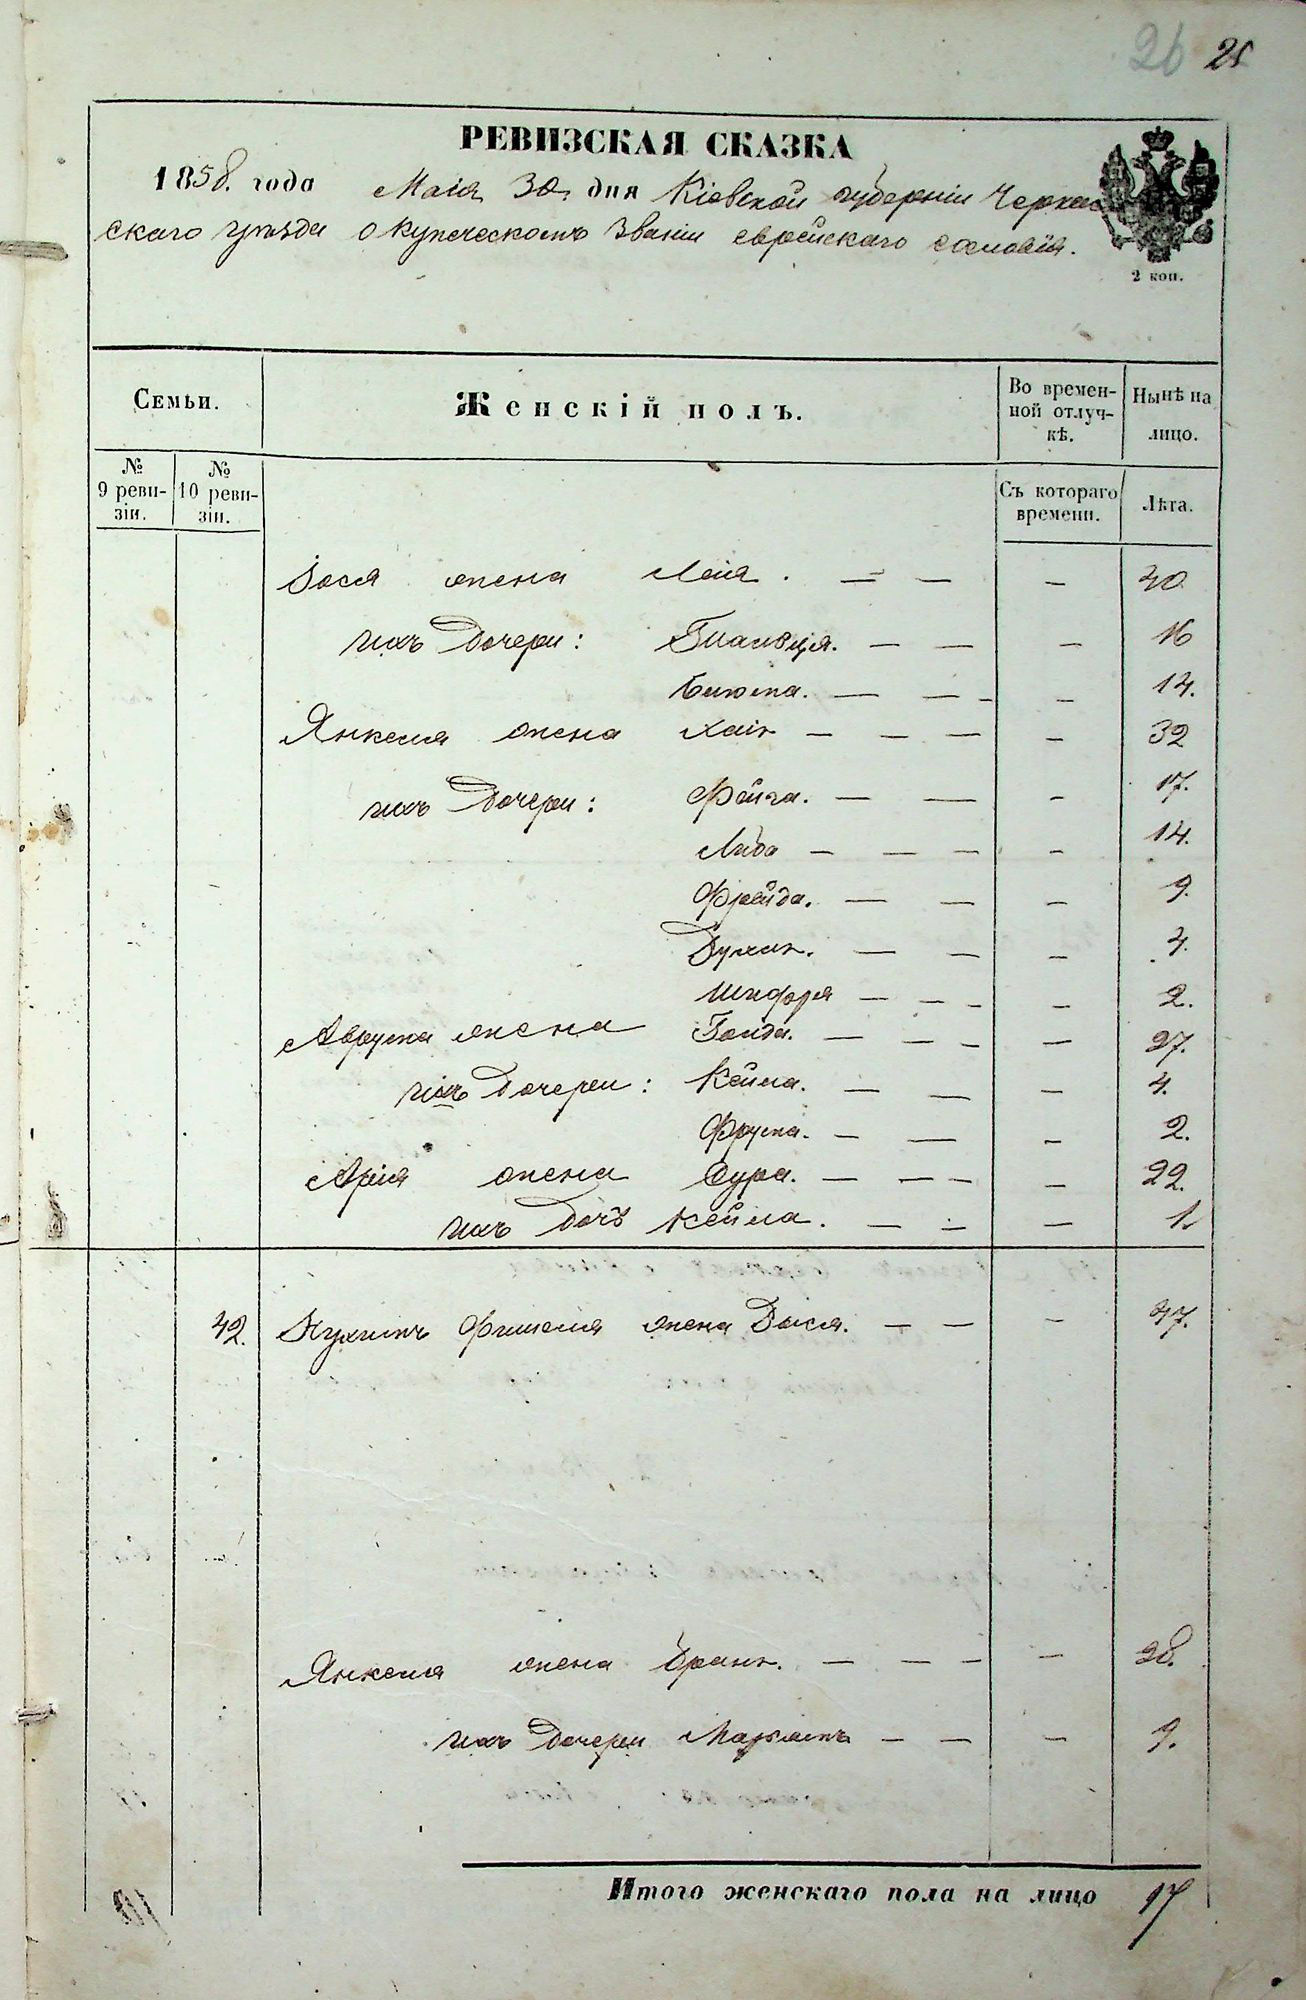 26 25
РЕВИЗСКАЯ СКАЗКА
1858. года Маія 30 дня Кіевской губерніи Черкас
скаго уѣзда о купеческомъ званіи еврейскаго сословія.
2 коп.
Семьи.
Женскій полъ.
Во времен-
ной отлуч-
кѣ.
Нынѣ на
лицо.
№
9 реви-
зіи.
№
10 реви-
зіи.
Съ котораго
времени.
Лѣта.
Іося жена Лея. — — — 40
ихъ дочери: — — — 16
Бињта. — — — 14.
Янкеля жена Хаія — — — — 32
ихъ дочери: Фейга. — — — 17.
Либа — — — — 14.
Фрейда. — — — 9.
— — — 4.
Шифря — — — — 2.
Аврума жена Голда. — — — — 27.
ихъ дочери: Кейла. — — — 4.
Фрума. — — — 2.
Арія жена Сура. — — — — 22.
ихъ дочь Кейла. — — — 1.
42. Фишеля жена Бася. — — — 47.
Янкеля жена Брана. — — — — 28.
ихъ дочери Марьямъ — — — 9.
Итого женскаго пола на лицо 17